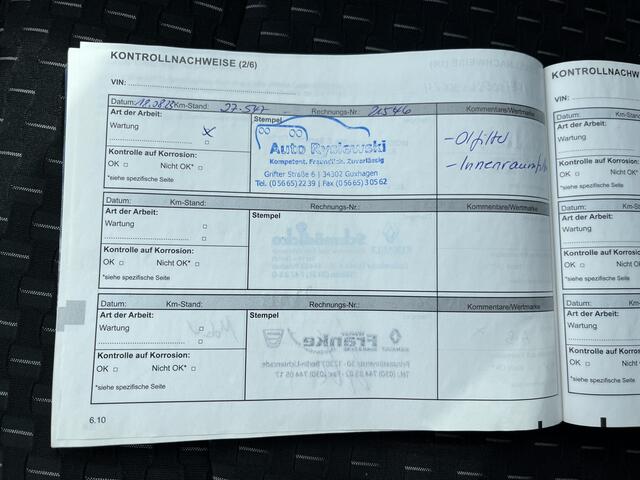 KONTROLLNACHWEISE (2/6)
VIN:
Datum: 18.08.23 Km-Stand: 27.547 Rechnungs-Nr.: 21546 Kommentare/Wertmarke
Art der Arbeit:
Wartung
Kontrolle auf Korrosion:
OK □ Nicht OK* □
*siehe spezifische Seite
Stempel
Auto Rysiewski
Kompetent. Freundlich. Zuverlässig
Grifter Straße 6 | 34302 Guxhagen
Tel. (05665) 2239 | Fax (05665) 30562
-Ölfilter
-Innenraumfilter
Datum: Km-Stand: Rechnungs-Nr.: Kommentare/Wertmarke
Art der Arbeit:
Wartung □
Kontrolle auf Korrosion:
OK □ Nicht OK* □
*siehe spezifische Seite
Stempel
Datum: Km-Stand: Rechnungs-Nr.: Kommentare/Wertmarke
Art der Arbeit:
Wartung □
Kontrolle auf Korrosion:
OK □ Nicht OK* □
*siehe spezifische Seite
Stempel
6.10
KONTROLLNACHWEISE
VIN:
Datum:
Art der Arbeit:
Wartung
Kontrolle auf
OK □
*siehe spezifische
Datum:
Art der Arbeit:
Wartung
Kontrolle auf
OK □
*siehe spezifisc
Datum:
Art der Arbeit:
Wartung
Kontrolle auf
OK □
*siehe spezifis